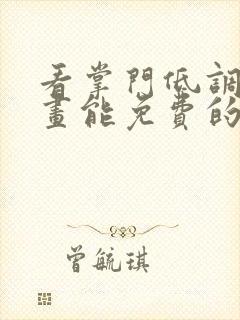 看掌門低調
畫能免費的
曾毓琪